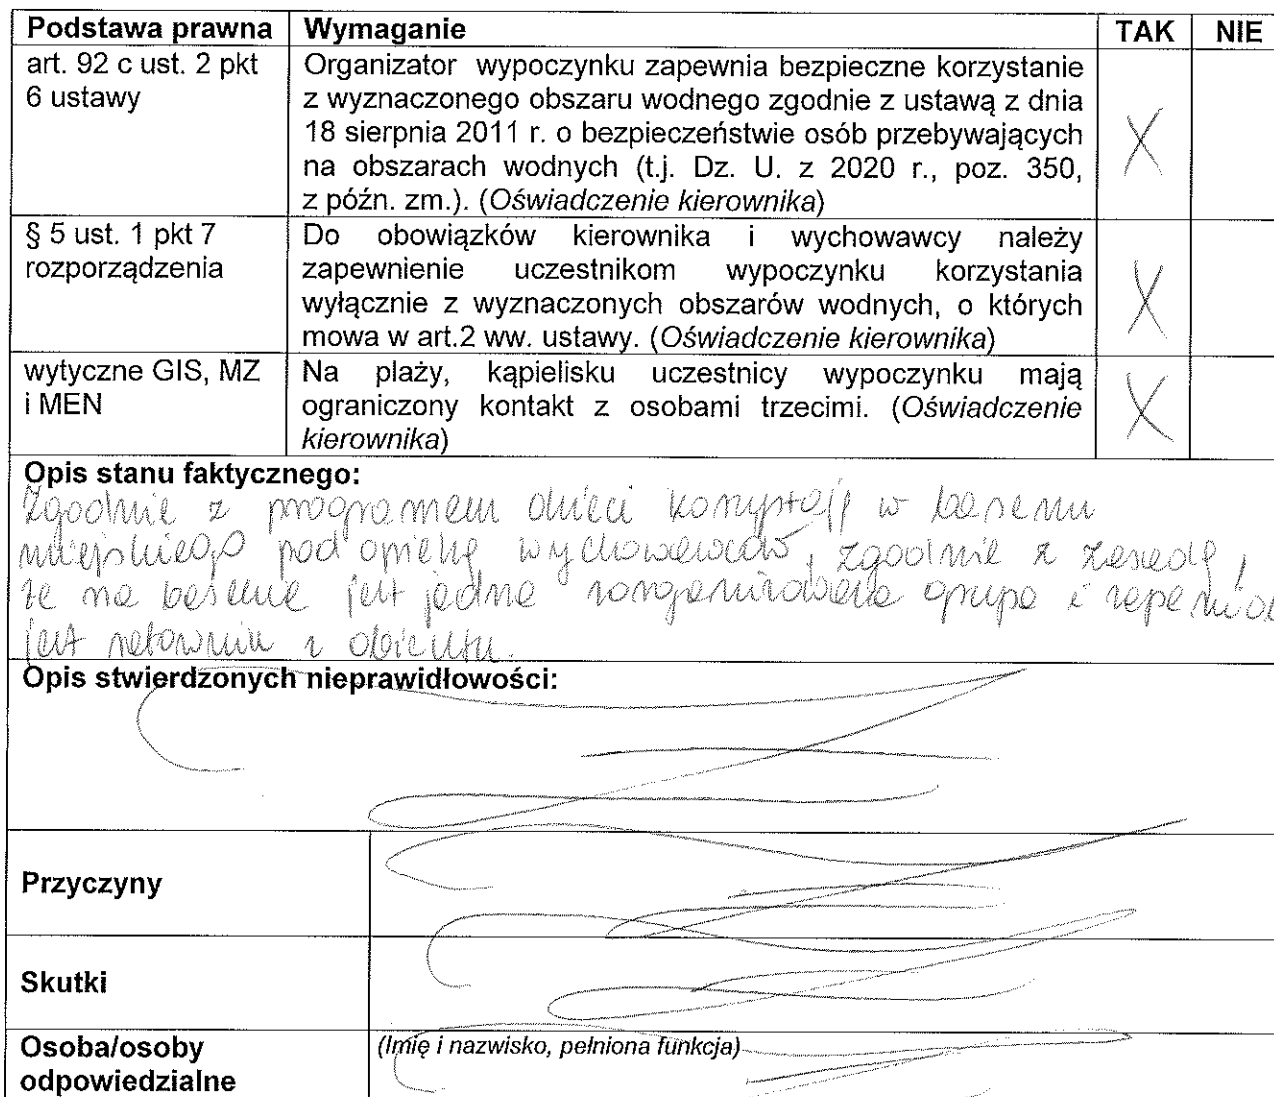 Podstawa prawna Wymaganie TAK NIE
art. 92 c ust. 2 pkt
6 ustawy
Organizator wypoczynku zapewnia bezpieczne korzystanie
z wyznaczonego obszaru wodnego zgodnie z ustawą z dnia
18 sierpnia 2011 r. o bezpieczeństwie osób przebywających
na obszarach wodnych (t.j. Dz. U. z 2020 r., poz. 350,
z późn. zm.). (Oświadczenie kierownika)
X
§ 5 ust. 1 pkt 7
rozporządzenia
Do obowiązków kierownika i wychowawcy należy
zapewnienie uczestnikom wypoczynku korzystania
wyłącznie z wyznaczonych obszarów wodnych, o których
mowa w art.2 ww. ustawy. (Oświadczenie kierownika)
X
wytyczne GIS, MZ
i MEN
Na plaży, kąpielisku uczestnicy wypoczynku mają
ograniczony kontakt z osobami trzecimi. (Oświadczenie
kierownika)
X
Opis stanu faktycznego:
Zgodnie z programem dzieci korzystają w basenu
miejskiego pod opieką wychowawców, zgodnie z zasadą,
że na basenie jest jedna zorganizowana grupa i
jest ratownik z obiektu.
Opis stwierdzonych nieprawidłowości:
Przyczyny
Skutki
Osoba/osoby
odpowiedzialne
(Imię i nazwisko, pełniona funkcja)